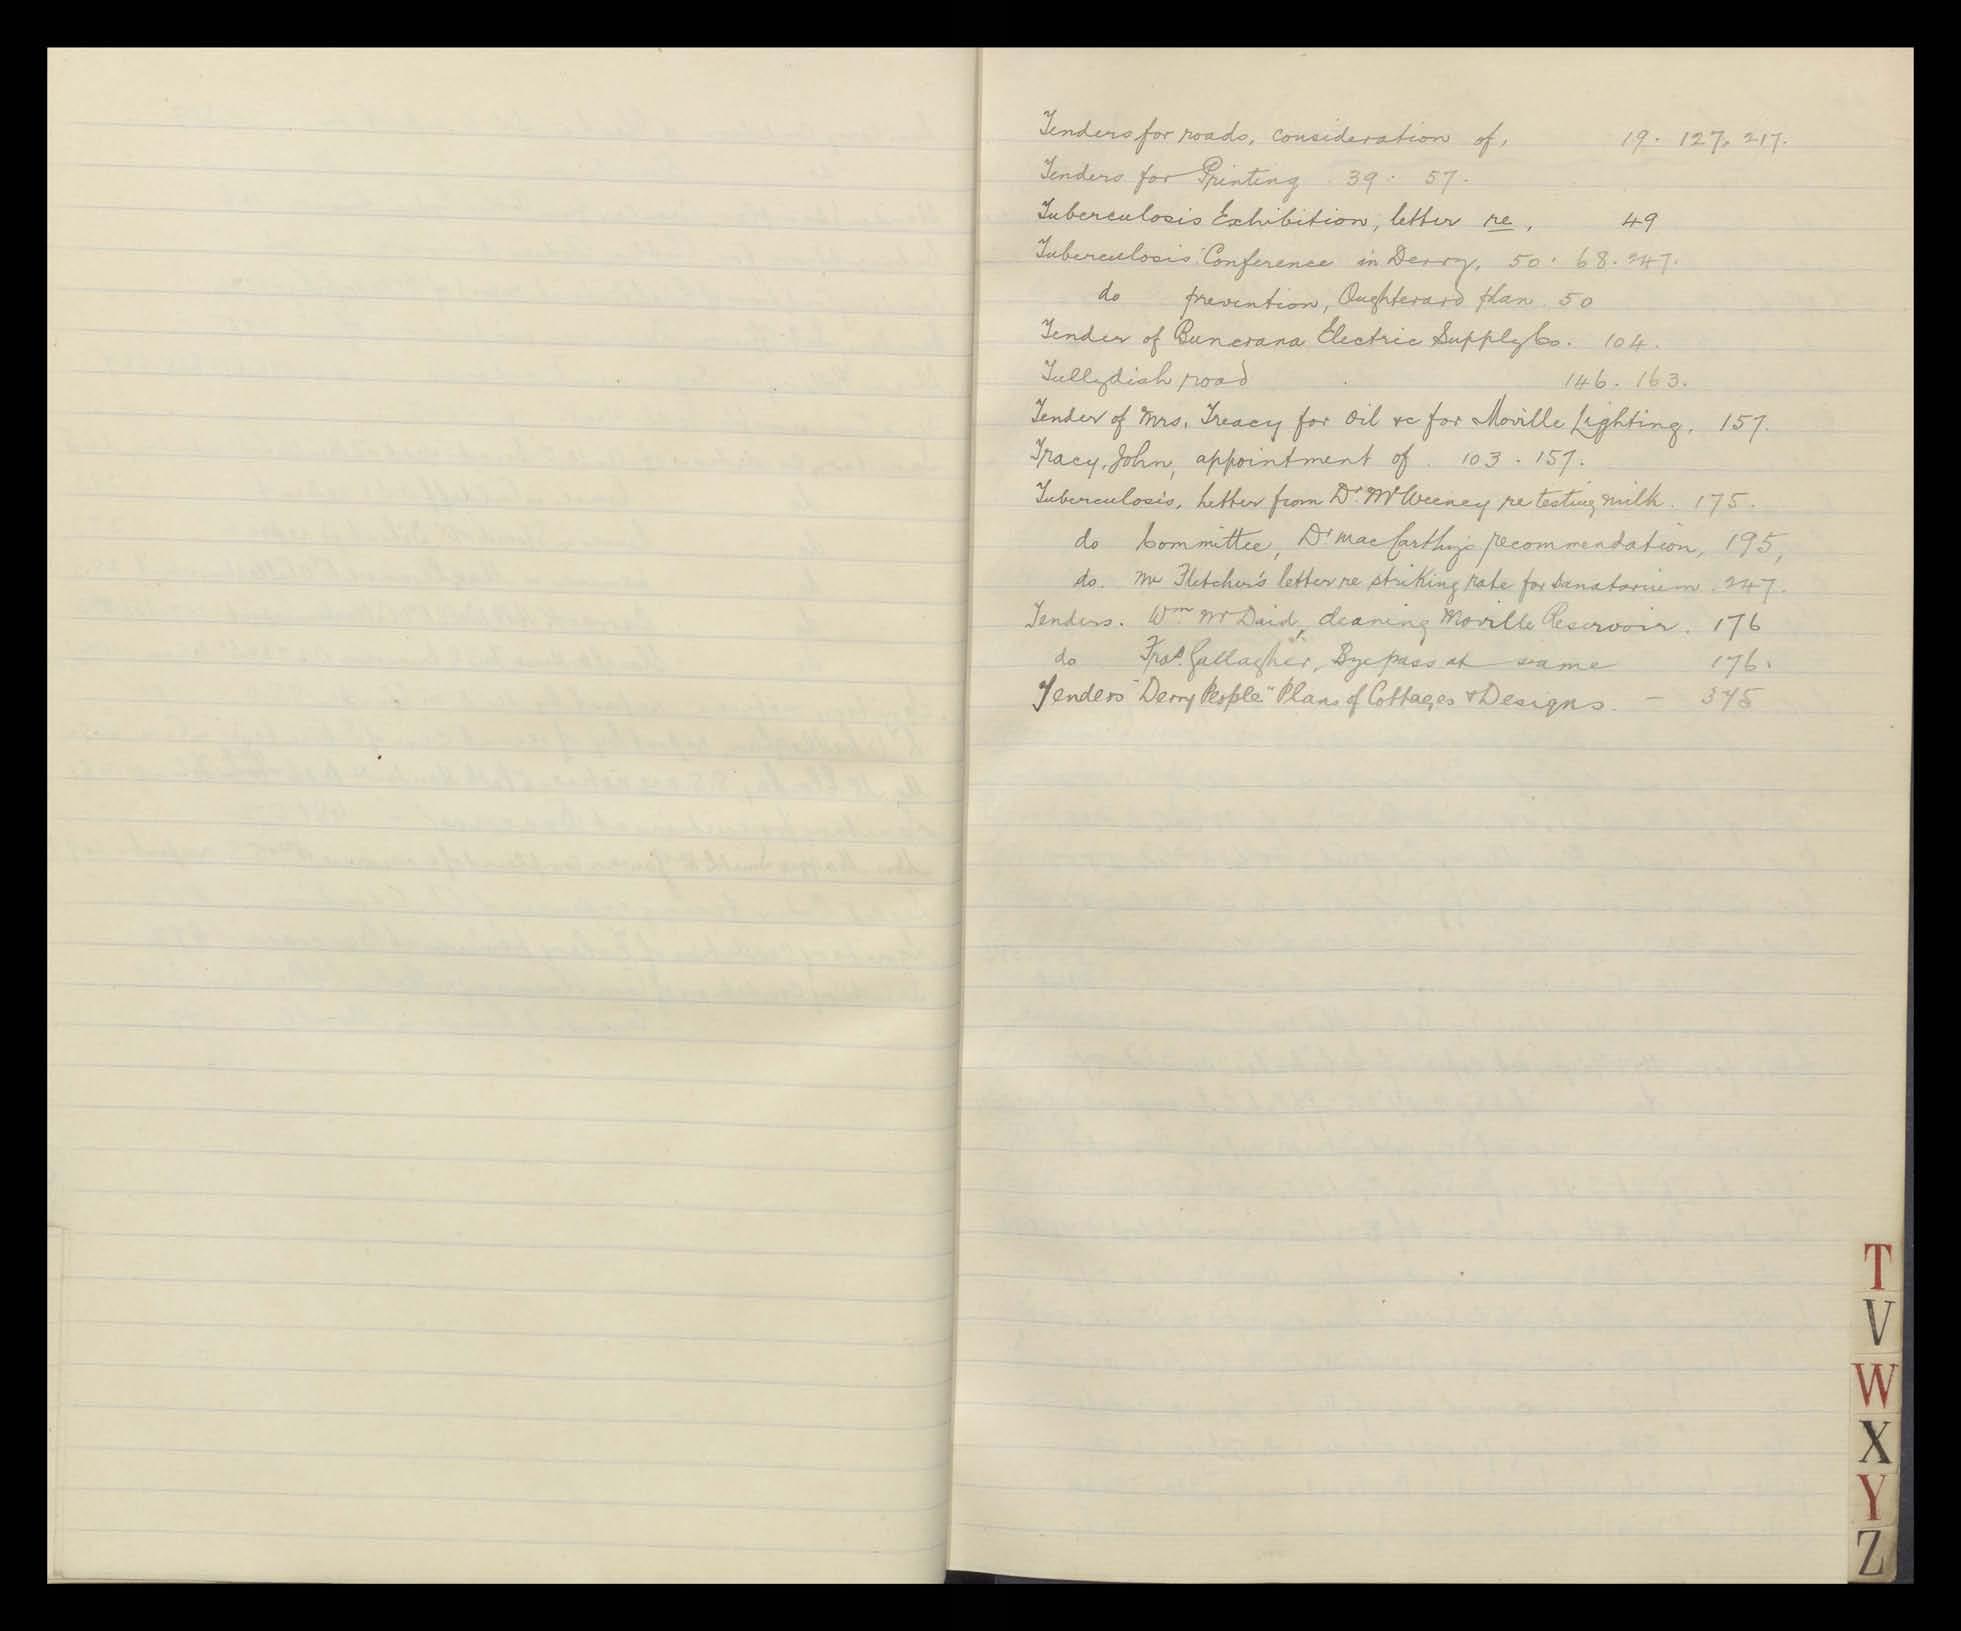 Tenders for roads, consideration of, 19. 127. 217.
Tenders for Printing 39. 57.
Tuberculosis Exhibition, letter re, 49
Tuberculosis Conference in Derry. 50. 68. 247.
do prevention, Oughterard plan. 50
Tender of Buncrana Electric Supply Co. 104.
Tullydish road 146. 163.
Tender of Mrs. Treacy for oil &c for Moville Lighting. 157.
Tracy, John, appointment of. 103. 157.
Tuberculosis, Letter from Dr. McWeeney re testing milk. 175.
do Committee, Dr MacCarthy's recommendation, 195,
do. Mr Fletcher's letter re striking rate for Sanatorium. 247.
Tenders. Wm McDaid, cleaning Moville Reservoir. 176
do Fras. Gallagher, Bye pass at same 176.
Tenders "Derry People" Plans of Cottages & Designs. - 345
T
V
W
X
Y
Z